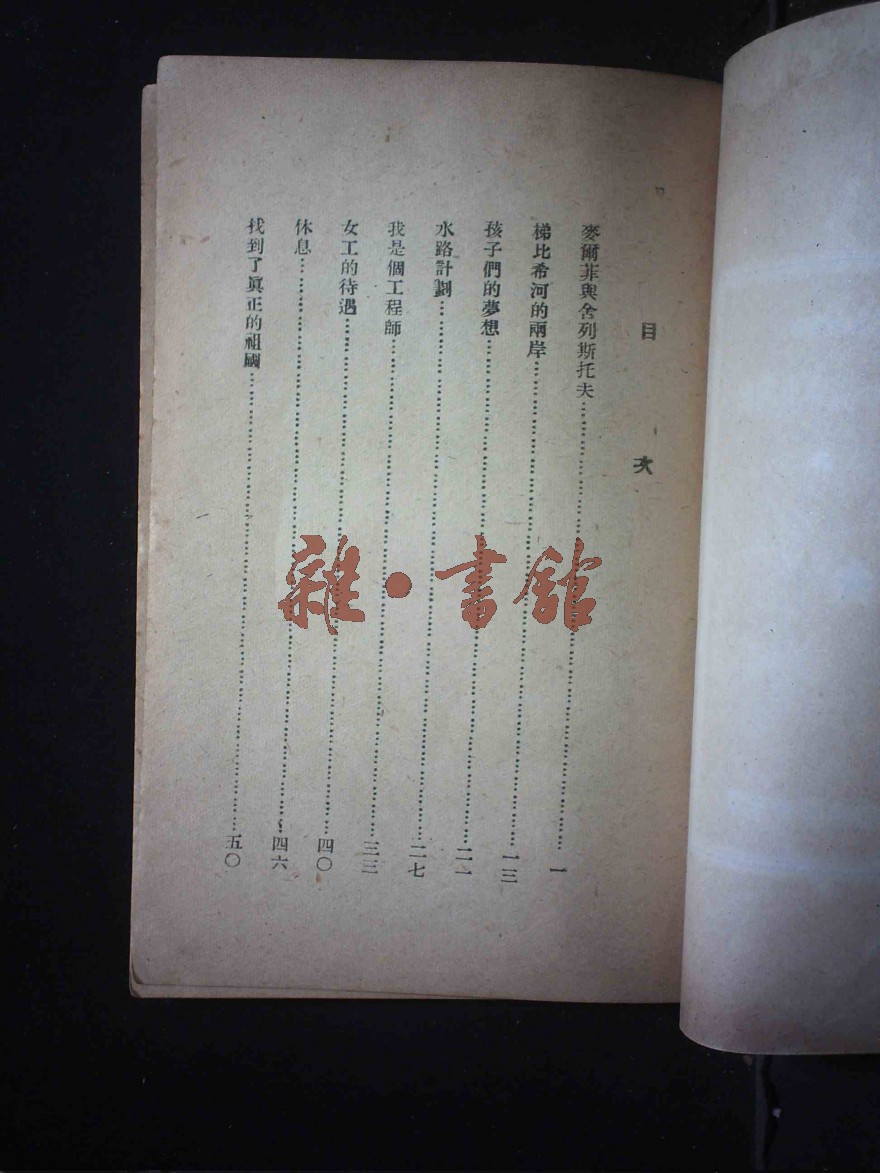 目次
麥爾菲與舍列斯托夫……一
梯比希河的兩岸……一三
孩子們的夢想……二一
水路計劃……二七
我是個工程師……三三
女工的待遇……四〇
休息……四六
找到了眞正的祖國……五〇
雜·書館